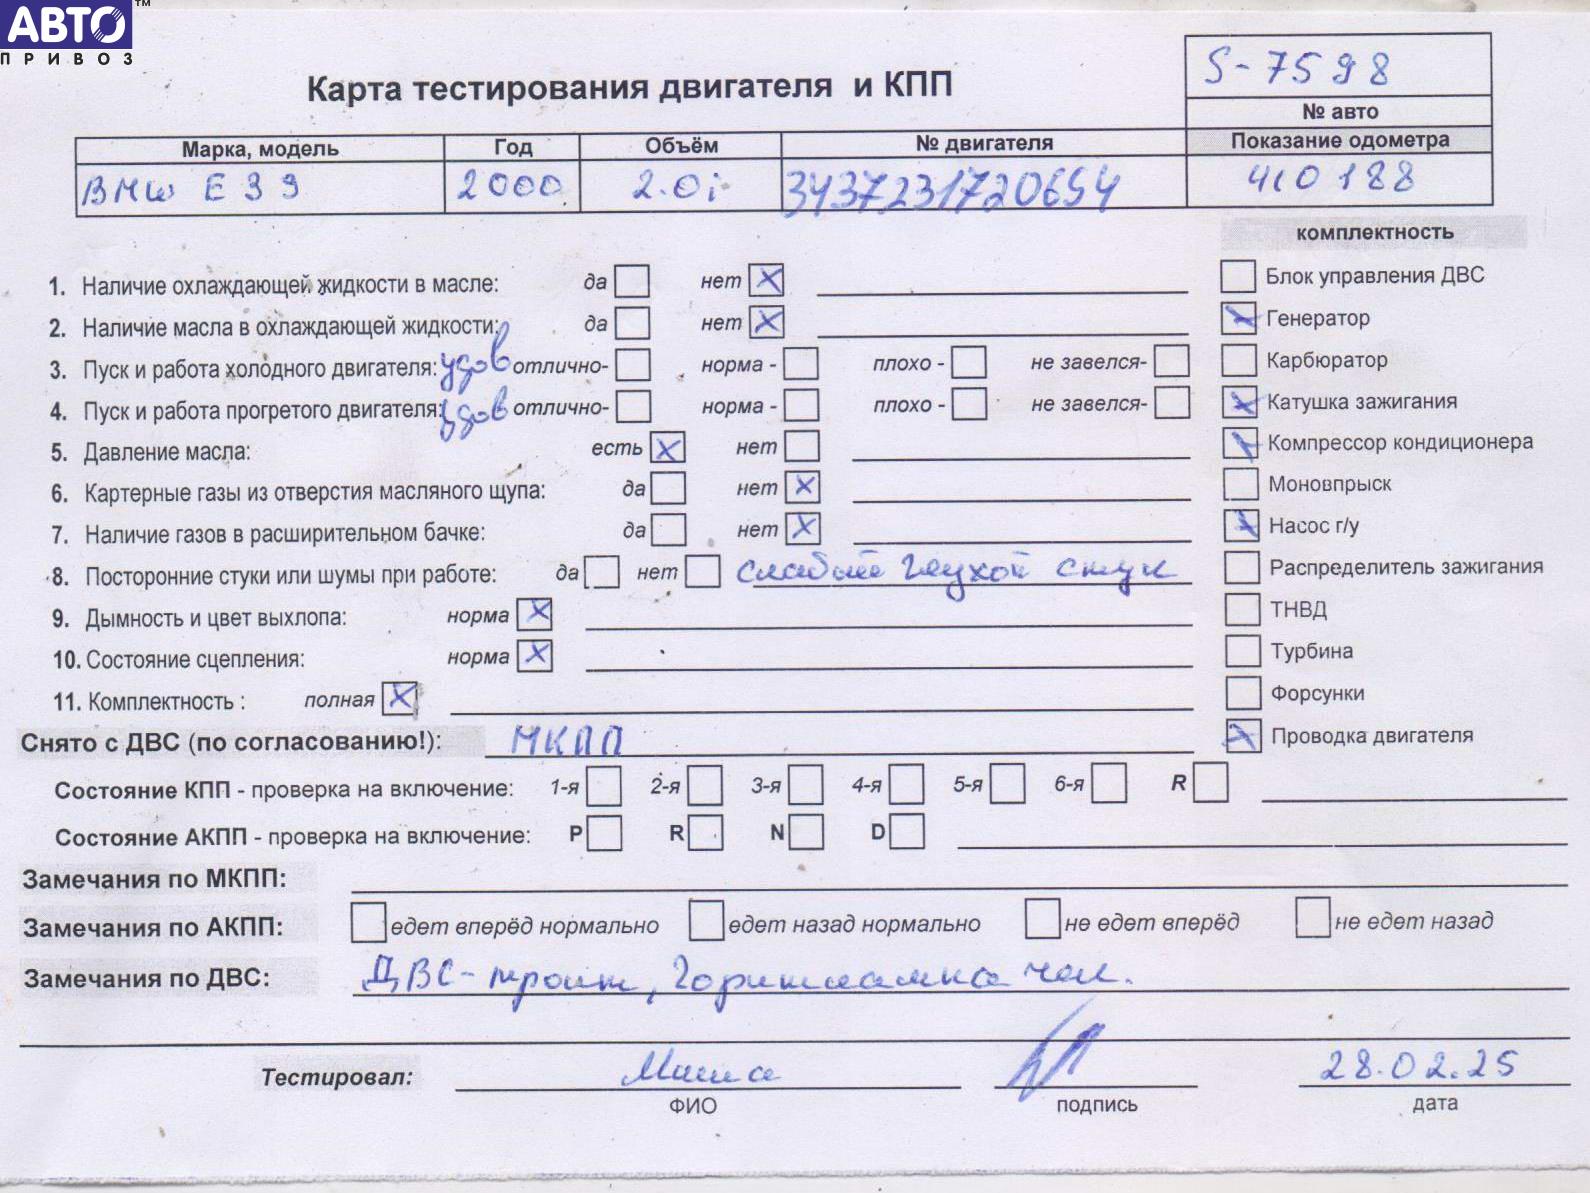 АВТО™
ПРИВОЗ
Карта тестирования двигателя и КПП
S-7598
№ авто
Марка, модель Год Объём № двигателя Показание одометра
BMW E39 2000 2.0i 3437231720654 410188
комплектность
1. Наличие охлаждающей жидкости в масле: да нет X
Блок управления ДВС
2. Наличие масла в охлаждающей жидкости: да нет X
X Генератор
3. Пуск и работа холодного двигателя: удов отлично- норма - плохо - не завелся-
Карбюратор
4. Пуск и работа прогретого двигателя: удов отлично- норма - плохо - не завелся-
X Катушка зажигания
5. Давление масла: есть X нет
X Компрессор кондиционера
6. Картерные газы из отверстия масляного щупа: да нет X
Моновпрыск
7. Наличие газов в расширительном бачке: да нет X
X Насос г/у
8. Посторонние стуки или шумы при работе: да нет слабый глухой стук
Распределитель зажигания
9. Дымность и цвет выхлопа: норма X
ТНВД
10. Состояние сцепления: норма X
Турбина
11. Комплектность : полная X
Форсунки
Снято с ДВС (по согласованию!): МКПП
X Проводка двигателя
Состояние КПП - проверка на включение: 1-я 2-я 3-я 4-я 5-я 6-я R
Состояние АКПП - проверка на включение: P R N D
Замечания по МКПП:
Замечания по АКПП: едет вперёд нормально едет назад нормально не едет вперёд не едет назад
Замечания по ДВС: ДВС - троит, Горит лампа чек.
Тестировал: Миша 28.02.25
ФИО подпись дата